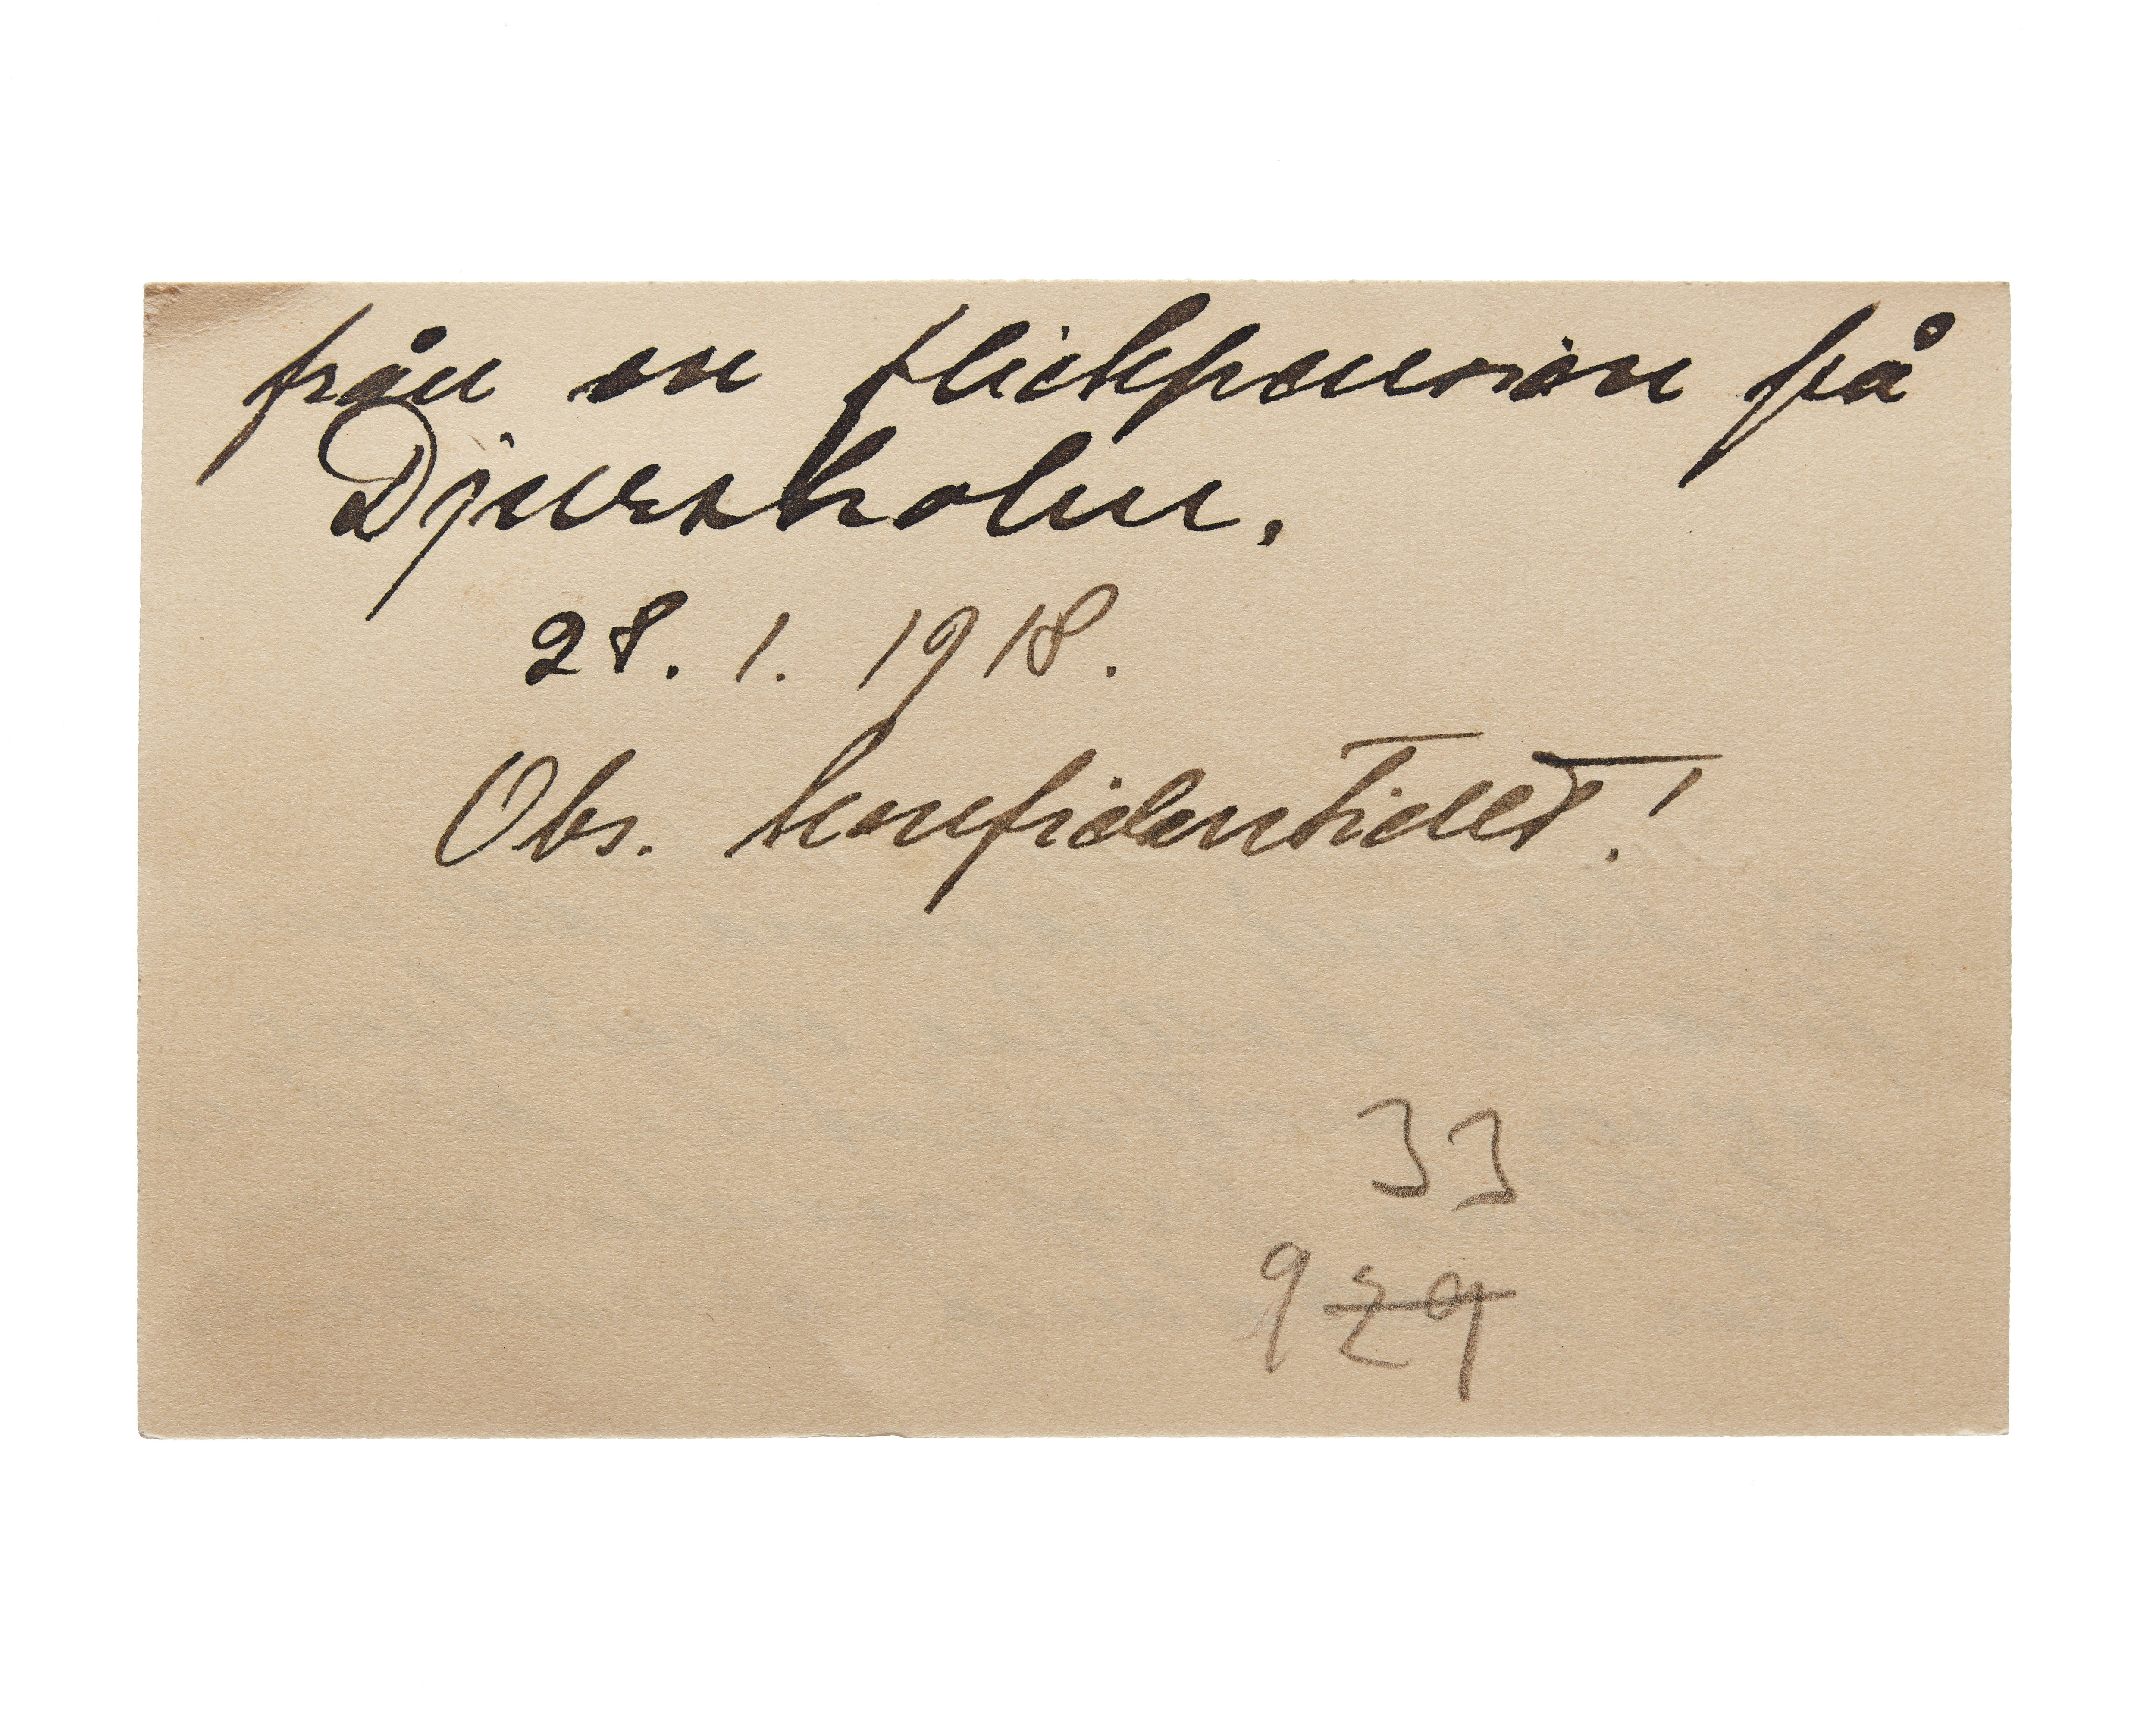 från en flickpension på
Djursholm.
28. 1. 1918.
Obs. konfidentiellt!
33
9 29